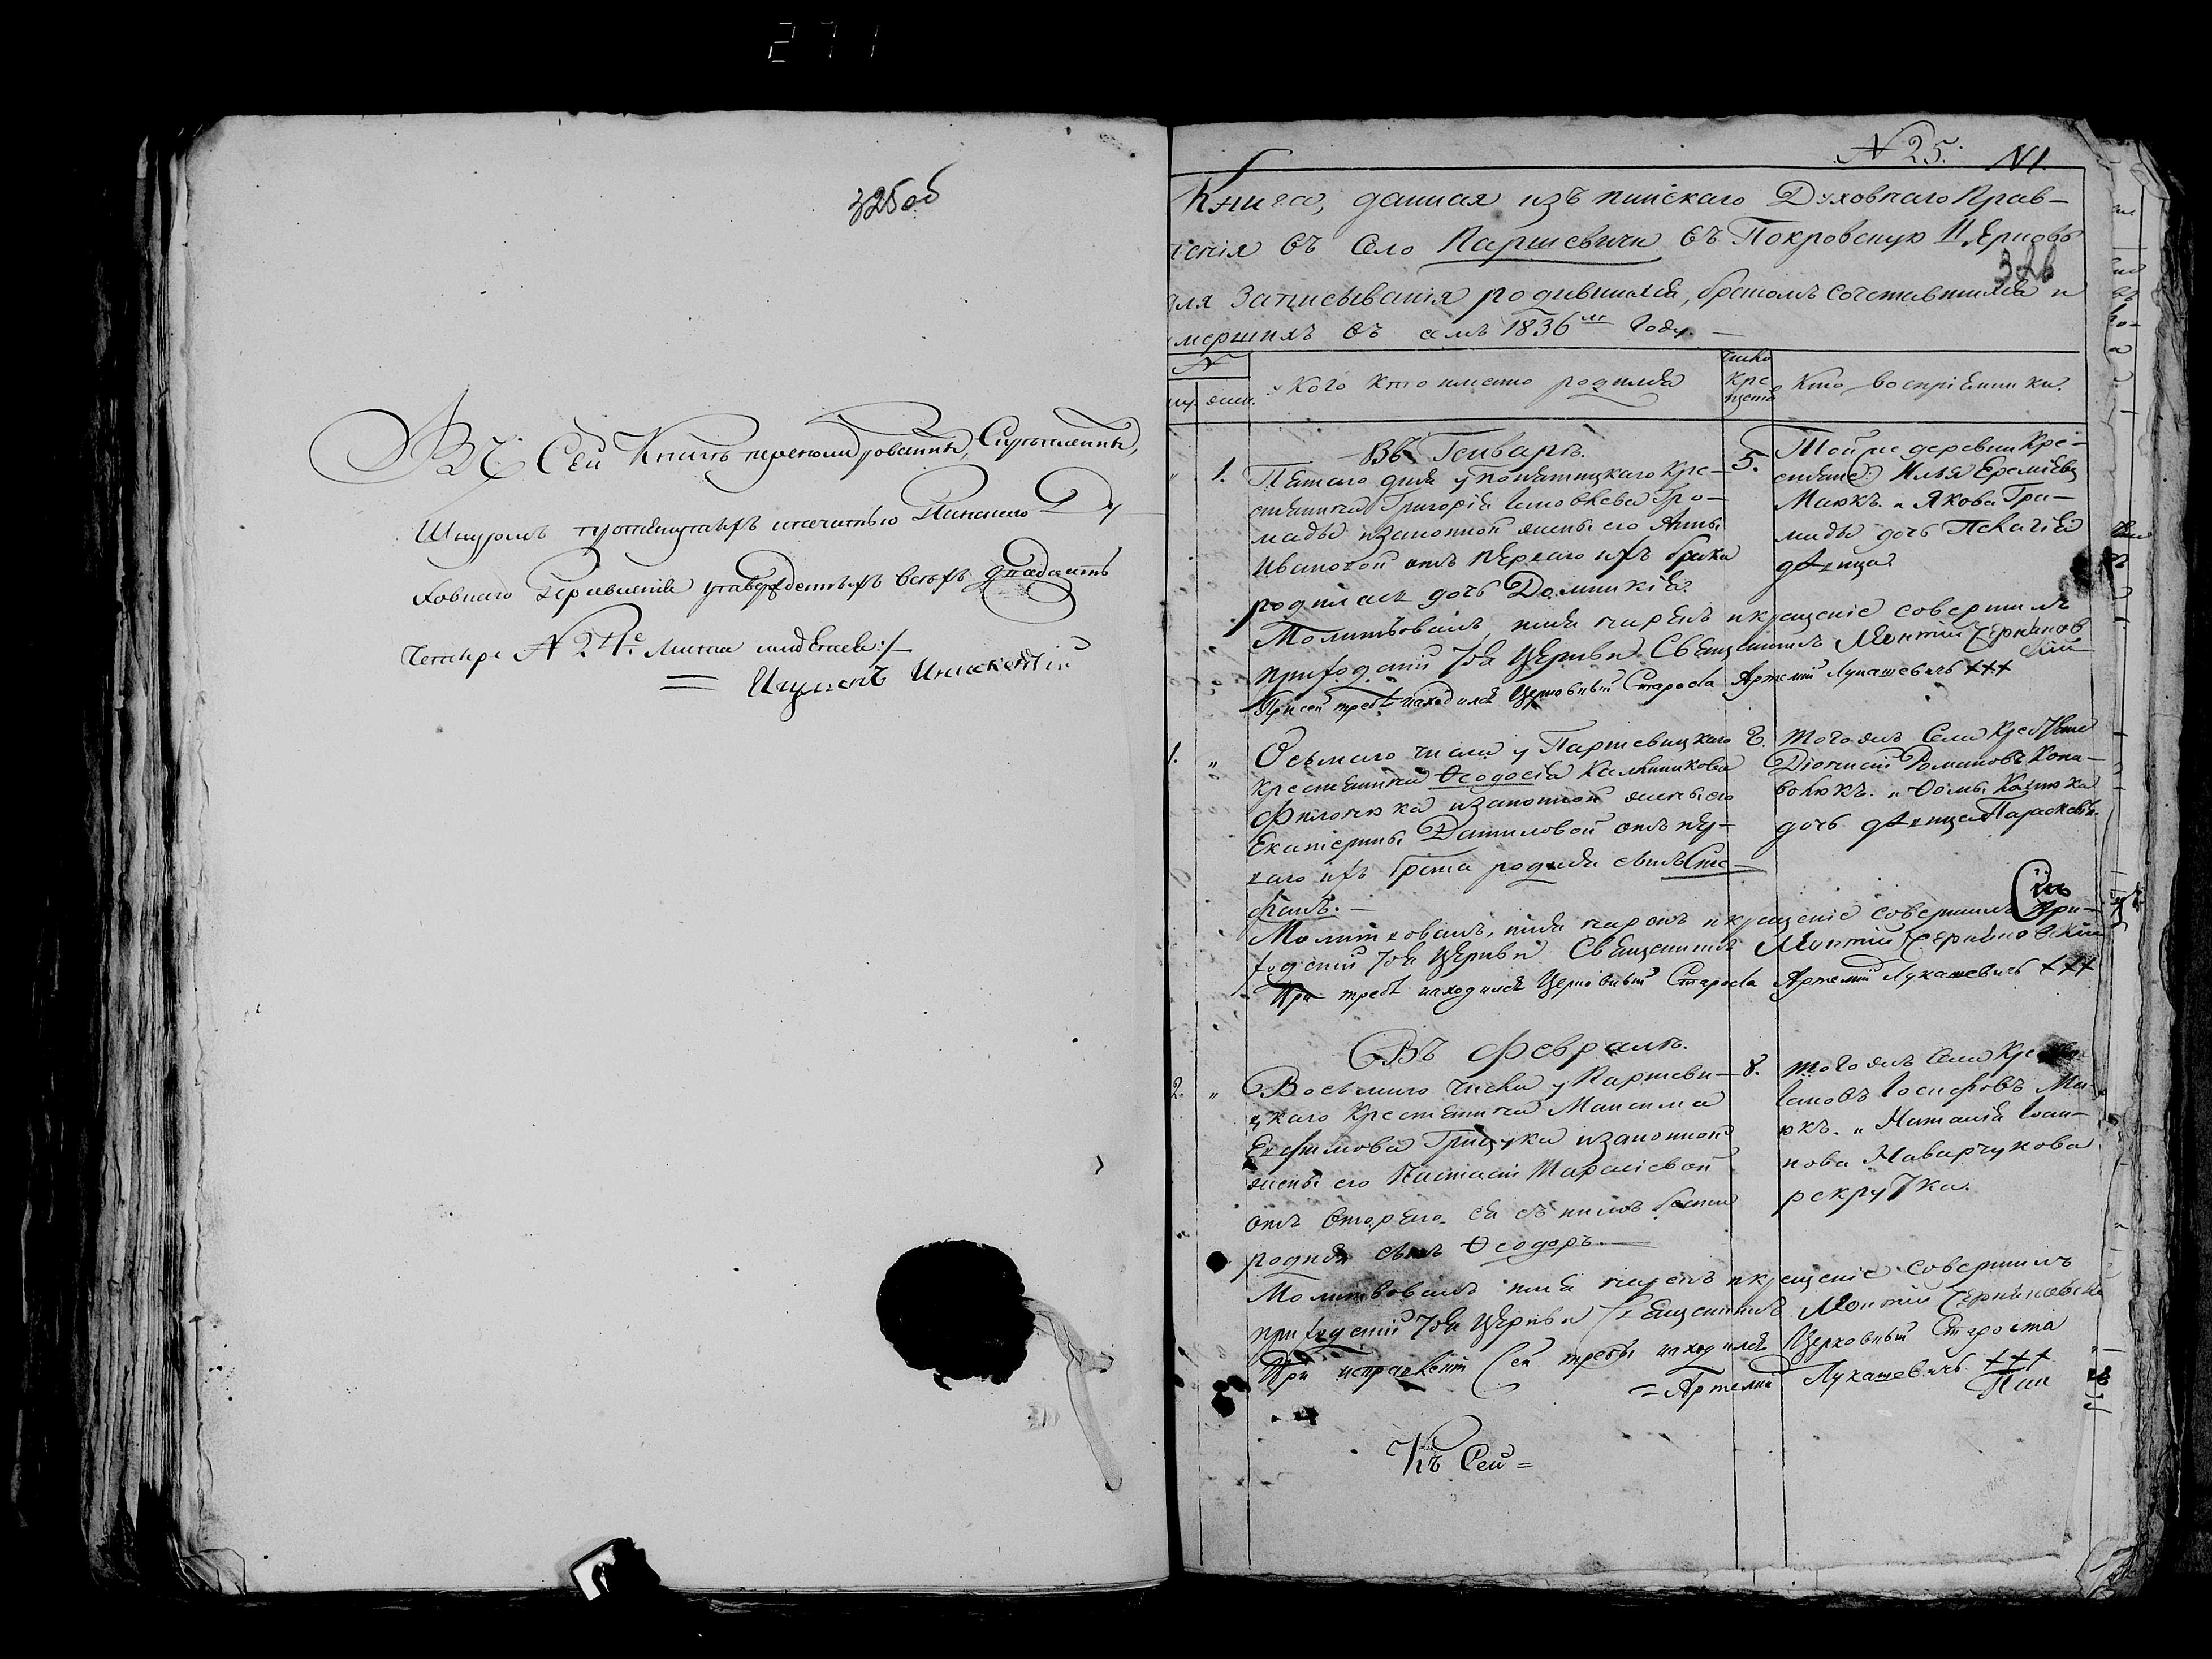 271
325об
Въ Сей Книгѣ перенумерованныхъ, Скрепленныхъ,
Шнуромъ протянутыхъ ипечатью Пинскаго Ду
ховнаго Правленія утвержденныхъ всѣхъ двадцать
Четыре № 24е. листа
Игуменъ
№ 25. №1.
Книга, данная изъ пинскаго Духовнаго Прав-
ленія въ Село Паршевичи въ Покровскую Церковь
326
для Записыванія родившихся, бракомъ сочетавшихся и
умершихъ въ семъ 1836м Году. —
№
му. жен. Кого кто имено родился Число Кре щенія Кто воспріемники.
Въ Генварѣ.
1. Пятаго дня у Кре-
стянина Григорія Гро-
мады изаконной жены его Анны
Ивановой отъ перваго ихъ брака
родилась дочь Домникія.
5. Тойже деревни Кре-
стянинъ Илья Еремѣевъ
Маюкъ. и Якова Гра-
мады дочь Пелагія
дѣвица
Молитвовалъ имя нарекъ икрещеніе совершилъ
приходскій тоя Церкви Священникъ Леонтій Чернянов
скій
При сей требѣ находился Церковный Староста Артемій Лукашевичъ +++
1. " Осьмаго числа у Паршевицкаго
крестянина Ѳеодосія Калиникова
Филонюка изаконной жены его
Екатерины Даниловой отъ пер-
ваго ихъ брака родился сынъ Сте-
фанъ. —
8. тогожъ Села
Діонисій Романовъ Кона-
дочь дѣвица Параскевія.
Молитвовалъ, имя нарекъ икрещеніе совершилъ При-
ходскій тоя Церкви Священникъ Леонтій Черняновскій
При требѣ находился Церковный Староста Артемій Лукашевичъ +++
Въ Февралѣ.
2. " Восьмаго числа у Паршеви-
цкаго Крестянина Максима
Евфимова Грицука изаконной
жены его Настасіи Тарасіевой
отъ втораго ея съ нимъ брака
родился сынъ Ѳеодоръ. —
8. тогожъ Села
Іосифовъ Ма-
юкъ. и Наталія Іоан-
нова Наварчукова
рекрутка.
Молитвовалъ имя нарекъ икрещеніе совершилъ
приходскій тоя Церкви Священникъ Леонтій Черняновскій
При исправленіи Сей требы находился Церковный Староста
= Артемій Лукашевичъ. +++
Къ Сей =